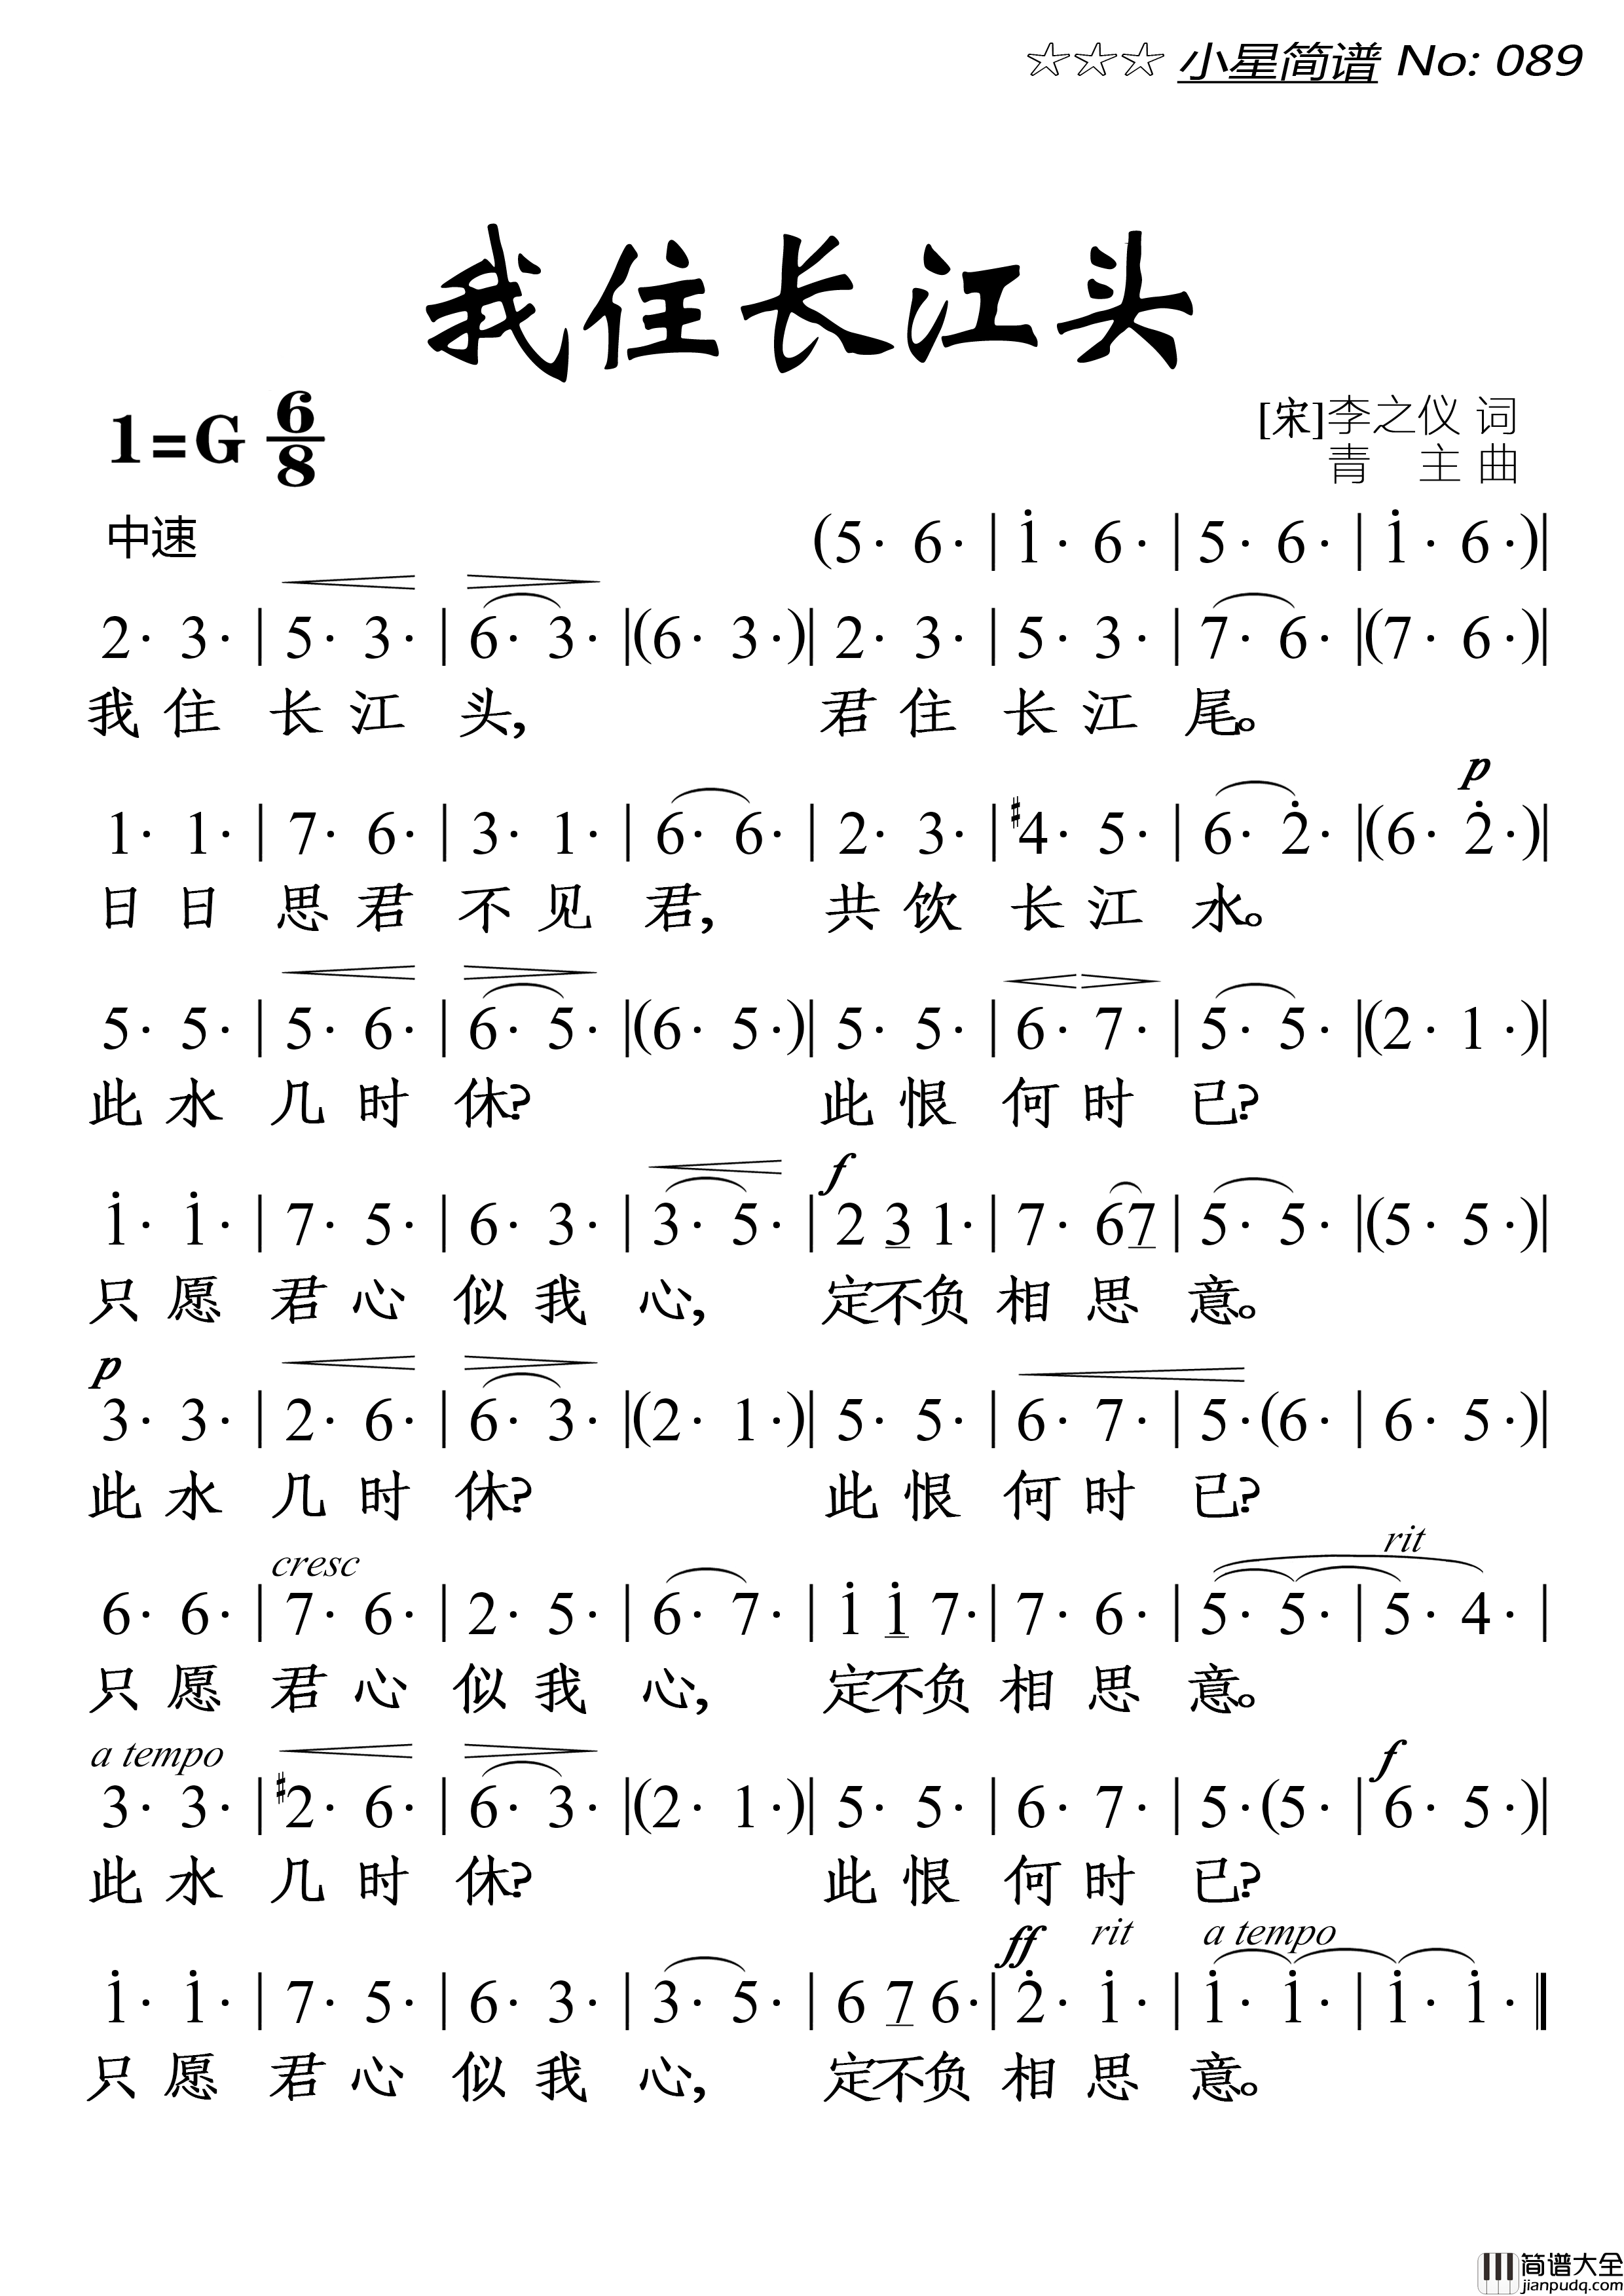 ☆☆☆ 小星简谱 No: 089
我住长江头
1=G 6/8
[宋]李之仪 词
青 主 曲
中速
(5· 6· | i· 6· | 5· 6· | i· 6·)|
2· 3· | 5· 3· | 6· 3· |(6· 3·)| 2· 3· | 5· 3· | 7· 6· |(7· 6·)|
我 住 长 江 头, 君 住 长 江 尾。
p
1· 1· | 7· 6· | 3· 1· | 6· 6· | 2· 3· | #4· 5· | 6· 2̇· |(6· 2̇·)|
日 日 思 君 不 见 君, 共 饮 长 江 水。
5· 5· | 5· 6· | 6· 5· |(6· 5·)| 5· 5· | 6· 7· | 5· 5· |(2· 1·)|
此 水 几 时 休? 此 恨 何 时 已?
f
i· i· | 7· 5· | 6· 3· | 3· 5· | 2 3 1· | 7· 67 | 5· 5· |(5· 5·)|
只 愿 君 心 似 我 心, 定不负 相 思 意。
p
3· 3· | 2· 6· | 6· 3· |(2· 1·)| 5· 5· | 6· 7· | 5·(6· | 6· 5·)|
此 水 几 时 休? 此 恨 何 时 已?
cresc rit
6· 6· | 7· 6· | 2· 5· | 6· 7· | i i 7· | 7· 6· | 5· 5· | 5· 4· |
只 愿 君 心 似 我 心, 定不负 相 思 意。
a tempo f
3· 3· | #2· 6· | 6· 3· |(2· 1·)| 5· 5· | 6· 7· | 5·(5· | 6· 5·)|
此 水 几 时 休? 此 恨 何 时 已?
ff rit a tempo
i· i· | 7· 5· | 6· 3· | 3· 5· | 6 7 6· | 2̇· i· | i· i· | i· i· ‖
只 愿 君 心 似 我 心, 定不负 相 思 意。
简谱大全
jianpudq.com